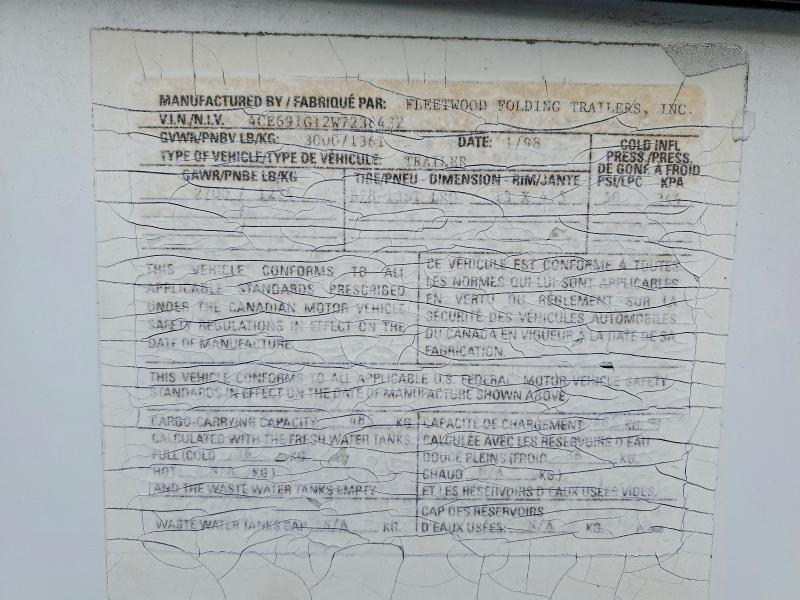 MANUFACTURED BY / FABRIQUÉ PAR: FLEETWOOD FOLDING TRAILERS, INC.
V.I.N./N.I.V.
GVWR/PNBV LB/KG: 3000/1361 DATE: 1/98
TYPE OF VEHICLE/TYPE DE VÉHICULE: TRAILER
COLD INFL
PRESS./PRESS.
DE GONF. À FROID
GAWR/PNBE LB/KG TIRE/PNEU - DIMENSION - RIM/JANTE PSI/LPC KPA
THIS VEHICLE CONFORMS TO ALL
APPLICABLE STANDARDS PRESCRIBED
UNDER THE CANADIAN MOTOR VEHICLE
SAFETY REGULATIONS IN EFFECT ON THE
DATE OF MANUFACTURE.
CE VÉHICULE EST CONFORME À TOUTES
LES NORMES QUI LUI SONT APPLICABLES
EN VERTU DU RÈGLEMENT SUR LA
SÉCURITÉ DES VÉHICULES AUTOMOBILES
DU CANADA EN VIGUEUR À LA DATE DE SA
FABRICATION.
THIS VEHICLE CONFORMS TO ALL APPLICABLE U.S. FEDERAL MOTOR VEHICLE SAFETY
STANDARDS IN EFFECT ON THE DATE OF MANUFACTURE SHOWN ABOVE
CARGO-CARRYING CAPACITY KG.
CALCULATED WITH THE FRESH WATER TANKS
FULL (COLD KG.
HOT N/A KG.)
AND THE WASTE WATER TANKS EMPTY
WASTE WATER TANKS CAP. N/A KG.
CAPACITÉ DE CHARGEMENT KG.
CALCULÉE AVEC LES RÉSERVOIRS D'EAU
DOUCE PLEINS (FROID KG.
CHAUD N/A KG.)
ET LES RÉSERVOIRS D'EAUX USÉES VIDES.
CAP DES RÉSERVOIRS
D'EAUX USÉES: N/A KG.